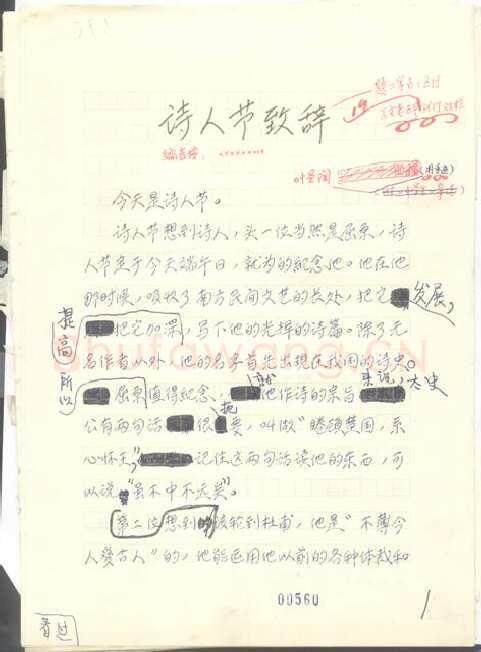 诗人节致辞
编者按：
叶圣陶
今天是诗人节。
诗人节想到诗人，头一位当然是屈原，诗
人节定于今天端午日，就为的纪念他。他在他
那时候，吸收了南方民间文艺的长处，把它发展，
提高把它加深，写下他的光辉的诗篇。除了无
名作者以外，他的名字首先出现在我国的诗史。
所以屈原值得纪念，就他作诗的宗旨来说，太史
公有两句话很扼要，叫做“睠顾楚国，系
心怀王”，记住这两句话读他的东西，可
以说“虽不中不远矣”。
第二位想到该轮到杜甫，他是“不薄今
人爱古人”的，他能运用他以前的各种体裁和
00560
1
看过